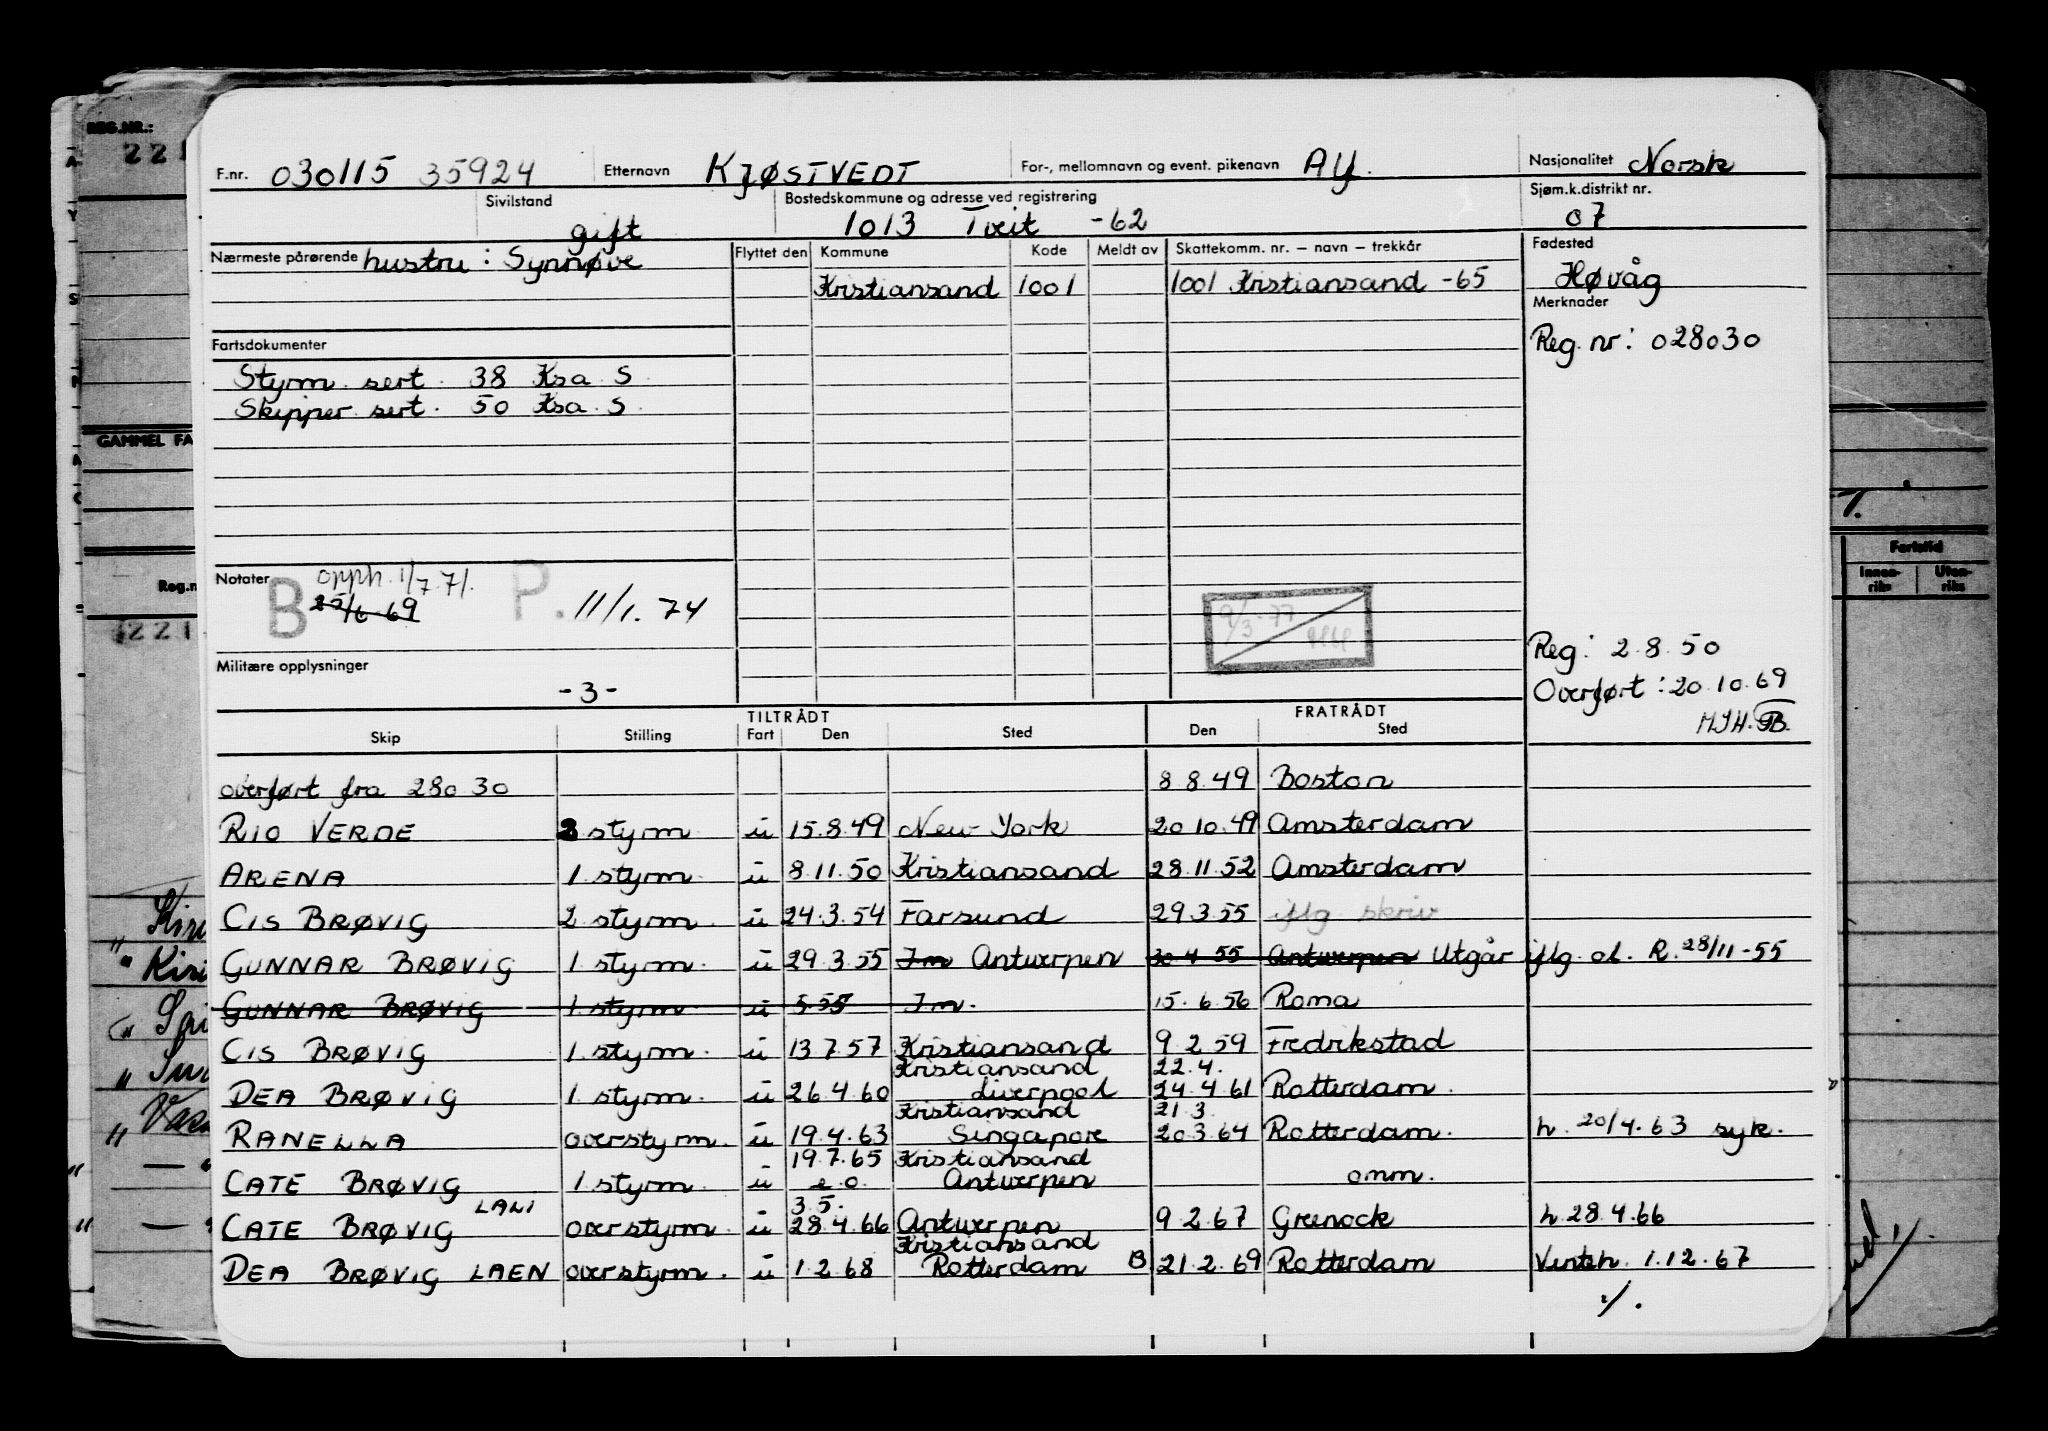 F.nr. 030115 35924 Etternavn KJØSTVEDT For-, mellomnavn og event. pikenavn Alf. Nasjonalitet Norsk
Sivilstand gift Bostedskommune og adresse ved registrering 1013 Tveit -62 Sjøm.k.distrikt nr. 07
Nærmeste pårørende hustru: Synnøve Flyttet den Kommune Kode Meldt av Skattekomm. nr. – navn – trekkår Fødested
Kristiansand 1001 1001 Kristiansand -65 Høvåg
Merknader
Fartsdokumenter Reg. nr: 028030
Styrm. sert. 38 Ksa. S.
Skipper sert. 50 Ksa. S.
Notater B opph. 1/7.71. P. 11/1.74
25/6-69
9/3-77
Reg: 2.8.50
Militære opplysninger
-3-
Overført: 20.10.69
TILTRÅDT FRATRÅDT
Skip Stilling Fart Den Sted Den Sted
overført fra 28030 8.8.49 Boston
RIO VERDE 2 styrm. u 15.8.49 New York 20.10.49 Amsterdam
ARENA 1. styrm. u 8.11.50 Kristiansand 28.11.52 Amsterdam
CIS BRØVIG 2 styrm. u 24.3.54 Farsund 29.3.55 iflg skriv
GUNNAR BRØVIG 1. styrm. u 29.3.55 Jm Antwerpen 30.4.55 Antwerpen Utgår iflg. al. R. 28/11-55
GUNNAR BRØVIG 1. styrm. u 5.55 Jm. 15.6.56 Roma
CIS BRØVIG 1. styrm. u 13.7.57 Kristiansand 9.2.59 Fredrikstad
Kristiansand 22.4.
DEA BRØVIG 1. styrm. u 26.4.60 Liverpool 24.4.61 Rotterdam.
Kristiansand 21.3.
RANELLA overstyrm. u 19.4.63 Singapore 20.3.64 Rotterdam. h. 20/4.63 syk.
19.7.65 Kristiansand
CATE BRØVIG 1. styrm. u e.o. Antwerpen omm.
LALI 3.5.
CATE BRØVIG overstyrm. u 28.4.66 Antwerpen 9.2.67 Greenock h. 28.4.66
Kristiansand
DEA BRØVIG LAEN overstyrm. u 1.2.68 Rotterdam B 21.2.69 Rotterdam Venteh. 1.12.67
./.
REG.NR.:
221
GAMMEL FA
Reg.n
221
Fartstid
Innen-
riks
Uten-
riks